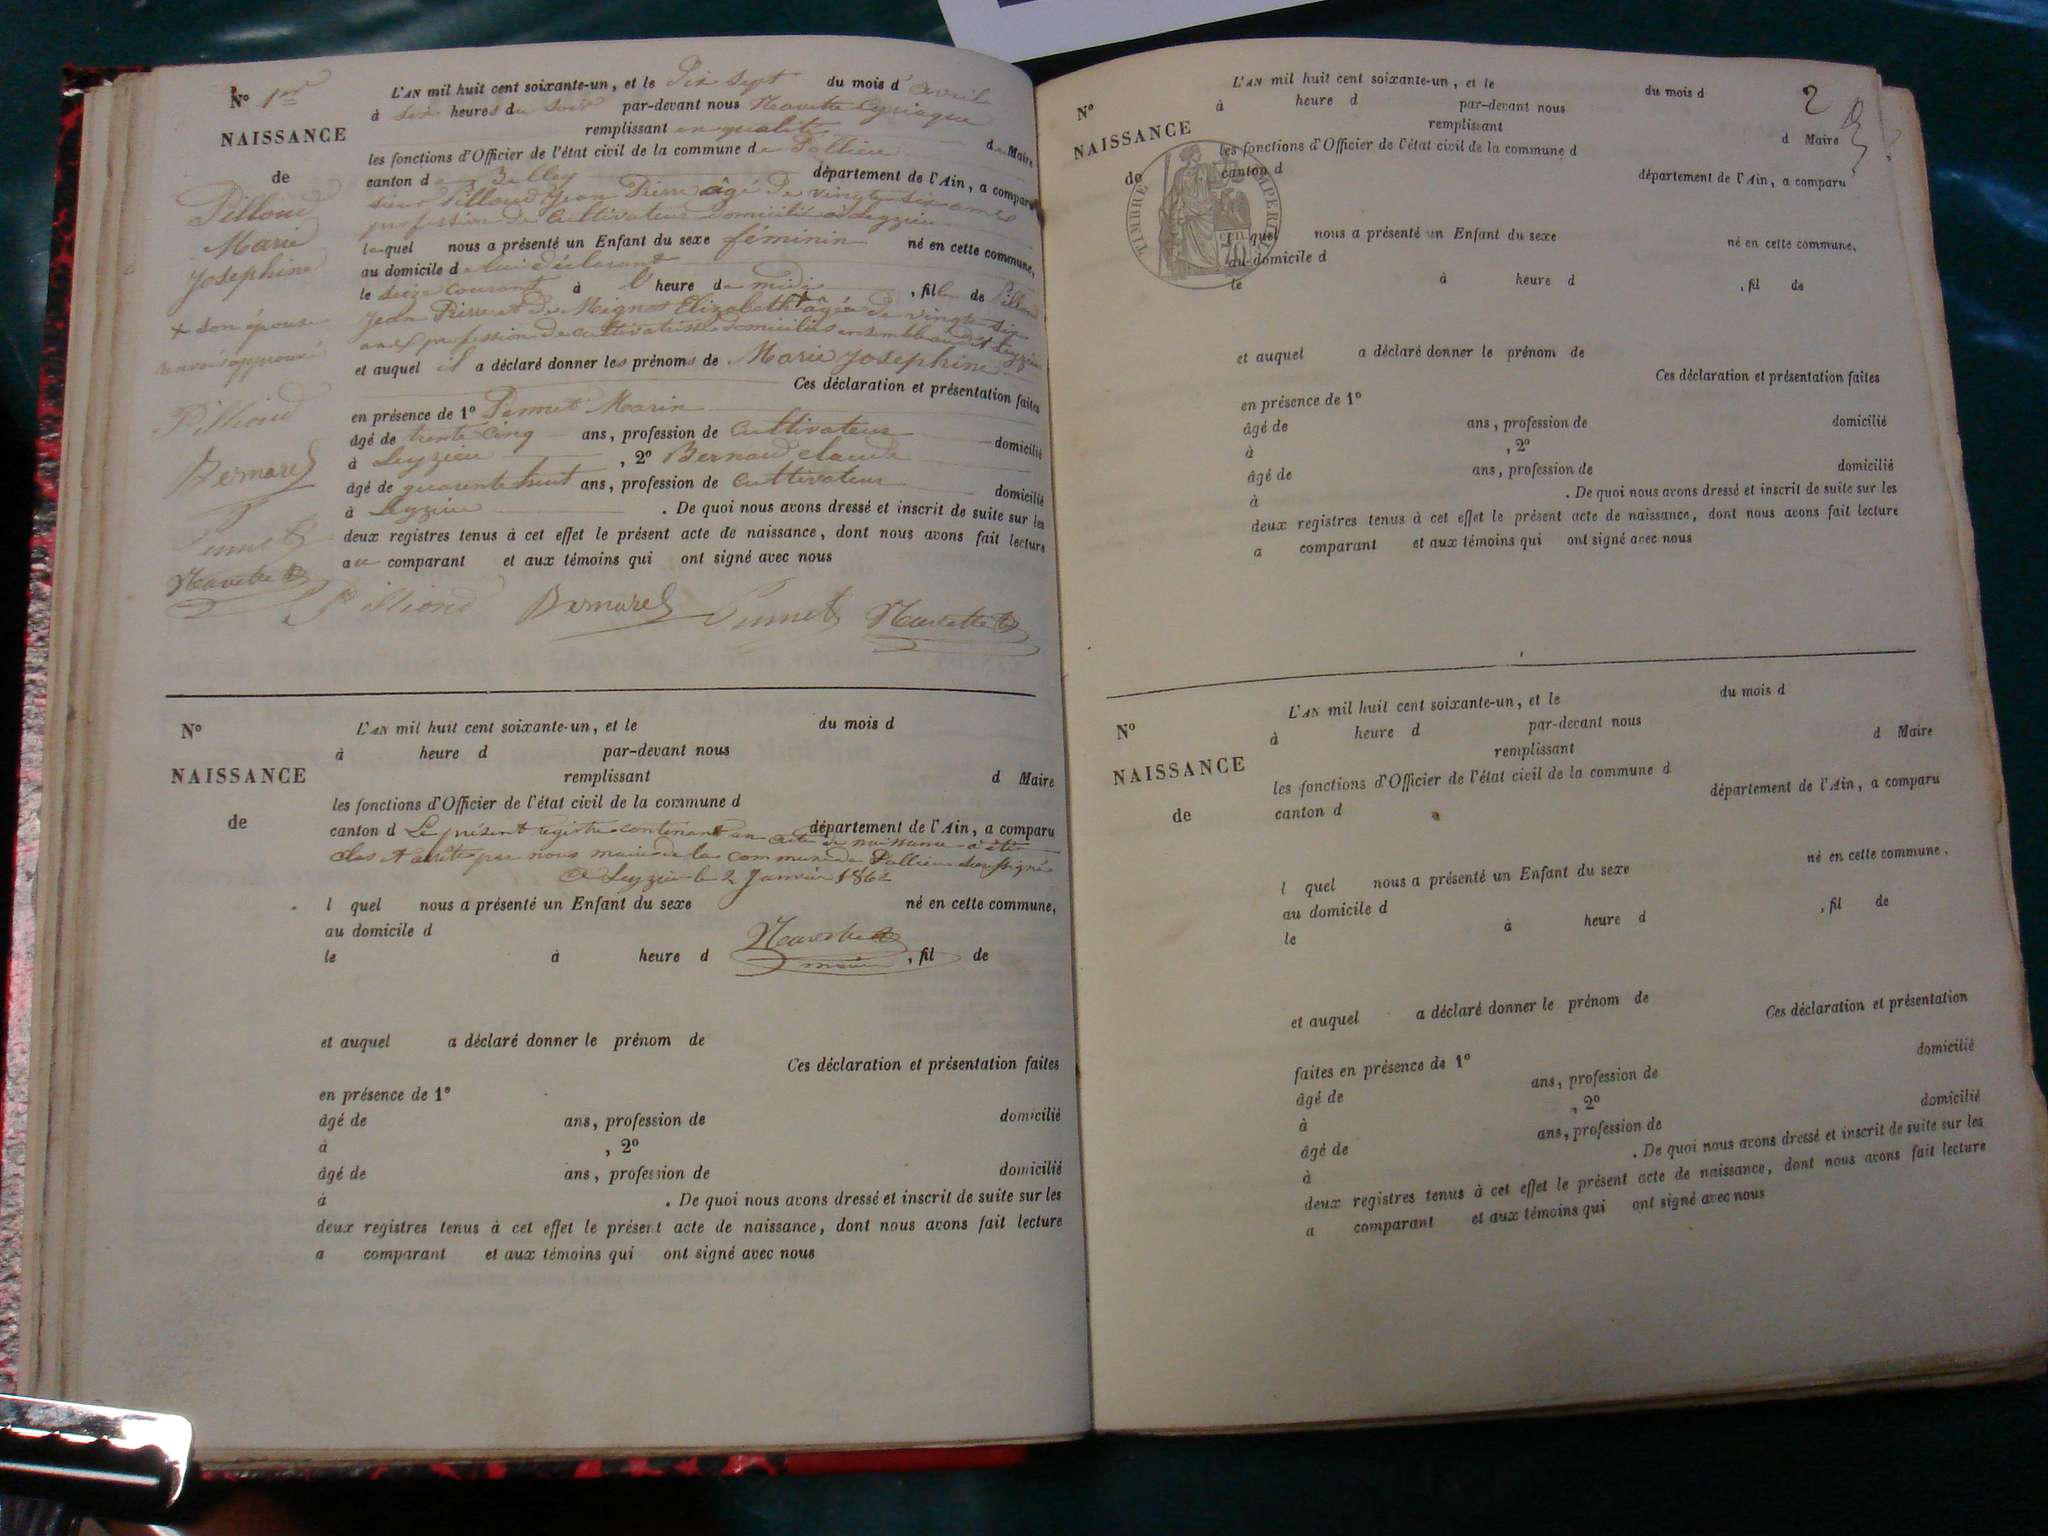 No 1er
NAISSANCE
de
Pilloud
Marie
Josephine
+ son épouse
renvoi approuvé
Pilloud
Bernard
Pernet
Navette
L'AN mil huit cent soixante-un, et le Dix sept du mois d'avril
à six heures du soir par-devant nous Navette Cyriaque
remplissant en qualité de Maire
les fonctions d'Officier de l'état civil de la commune de Pollieu
canton de Belley département de l'Ain, a comparu
sieur Pilloud Jean Pierre âgé de vingt six ans
profession de Cultivateur domicilié à Leyzieu
lequel nous a présenté un Enfant du sexe féminin né en cette commune,
au domicile de lui déclarant
le seize courant à l' heure de midi , fille de Pilloud
Jean Pierre et de Mignot Elizabeth + âgée de vingt six
ans profession de cultivatrice domiciliés ensemble audit Leyzieu
et auquel il a déclaré donner les prénoms de Marie Josephine
Ces déclaration et présentation faites
en présence de 1º Pernet Marin
âgé de trente cinq ans, profession de Cultivateur domicilié
à Leyzieu , 2º Bernard Claude
âgé de quarente huit ans, profession de Cultivateur domicilié
à Leyzieu . De quoi nous avons dressé et inscrit de suite sur les
deux registres tenus à cet effet le présent acte de naissance, dont nous avons fait lecture
au comparant et aux témoins qui ont signé avec nous
Pilloud Bernard Pernet Navette
No
NAISSANCE
de
L'AN mil huit cent soixante-un, et le du mois d
à heure d par-devant nous
remplissant d Maire
les fonctions d'Officier de l'état civil de la commune d
canton d département de l'Ain, a comparu
Le présent registre contenant un acte de naissance a été
clos et arrêté par nous maire de la commune de Pollieu soussigné
à Leyzieu le 2 Janvier 1862
l quel nous a présenté un Enfant du sexe né en cette commune,
au domicile d
le à heure d , fil de
Navette
maire
et auquel a déclaré donner le prénom de
Ces déclaration et présentation faites
en présence de 1º
âgé de ans, profession de domicilié
à , 2º
âgé de ans, profession de domicilié
à . De quoi nous avons dressé et inscrit de suite sur les
deux registres tenus à cet effet le présent acte de naissance, dont nous avons fait lecture
a comparant et aux témoins qui ont signé avec nous
2
No
NAISSANCE
de
TIMBRE IMPERIAL
CEN 70
L'AN mil huit cent soixante-un, et le du mois d
à heure d par-devant nous
remplissant d Maire
les fonctions d'Officier de l'état civil de la commune d
canton d département de l'Ain, a comparu
l quel nous a présenté un Enfant du sexe né en cette commune,
au domicile d
le à heure d , fil de
et auquel a déclaré donner le prénom de
Ces déclaration et présentation faites
en présence de 1º
âgé de ans, profession de domicilié
à , 2º
âgé de ans, profession de domicilié
à . De quoi nous avons dressé et inscrit de suite sur les
deux registres tenus à cet effet le présent acte de naissance, dont nous avons fait lecture
a comparant et aux témoins qui ont signé avec nous
No
NAISSANCE
de
L'AN mil huit cent soixante-un, et le du mois d
à heure d par-devant nous
remplissant d Maire
les fonctions d'Officier de l'état civil de la commune d
canton d département de l'Ain, a comparu
l quel nous a présenté un Enfant du sexe né en cette commune,
au domicile d
le à heure d , fil de
et auquel a déclaré donner le prénom de
Ces déclaration et présentation
faites en présence de 1º
âgé de ans, profession de domicilié
à , 2º
âgé de ans, profession de domicilié
à . De quoi nous avons dressé et inscrit de suite sur les
deux registres tenus à cet effet le présent acte de naissance, dont nous avons fait lecture
a comparant et aux témoins qui ont signé avec nous